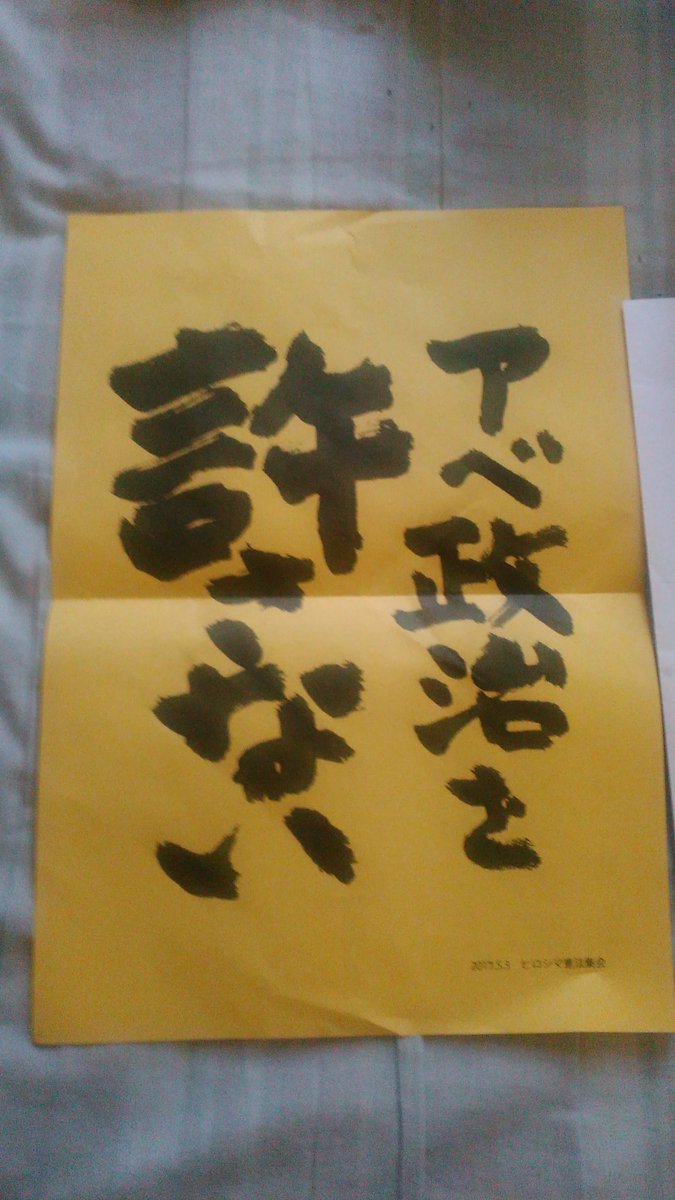 アベ政治を
許さない
2017.5.3 ヒロシマ憲法集会